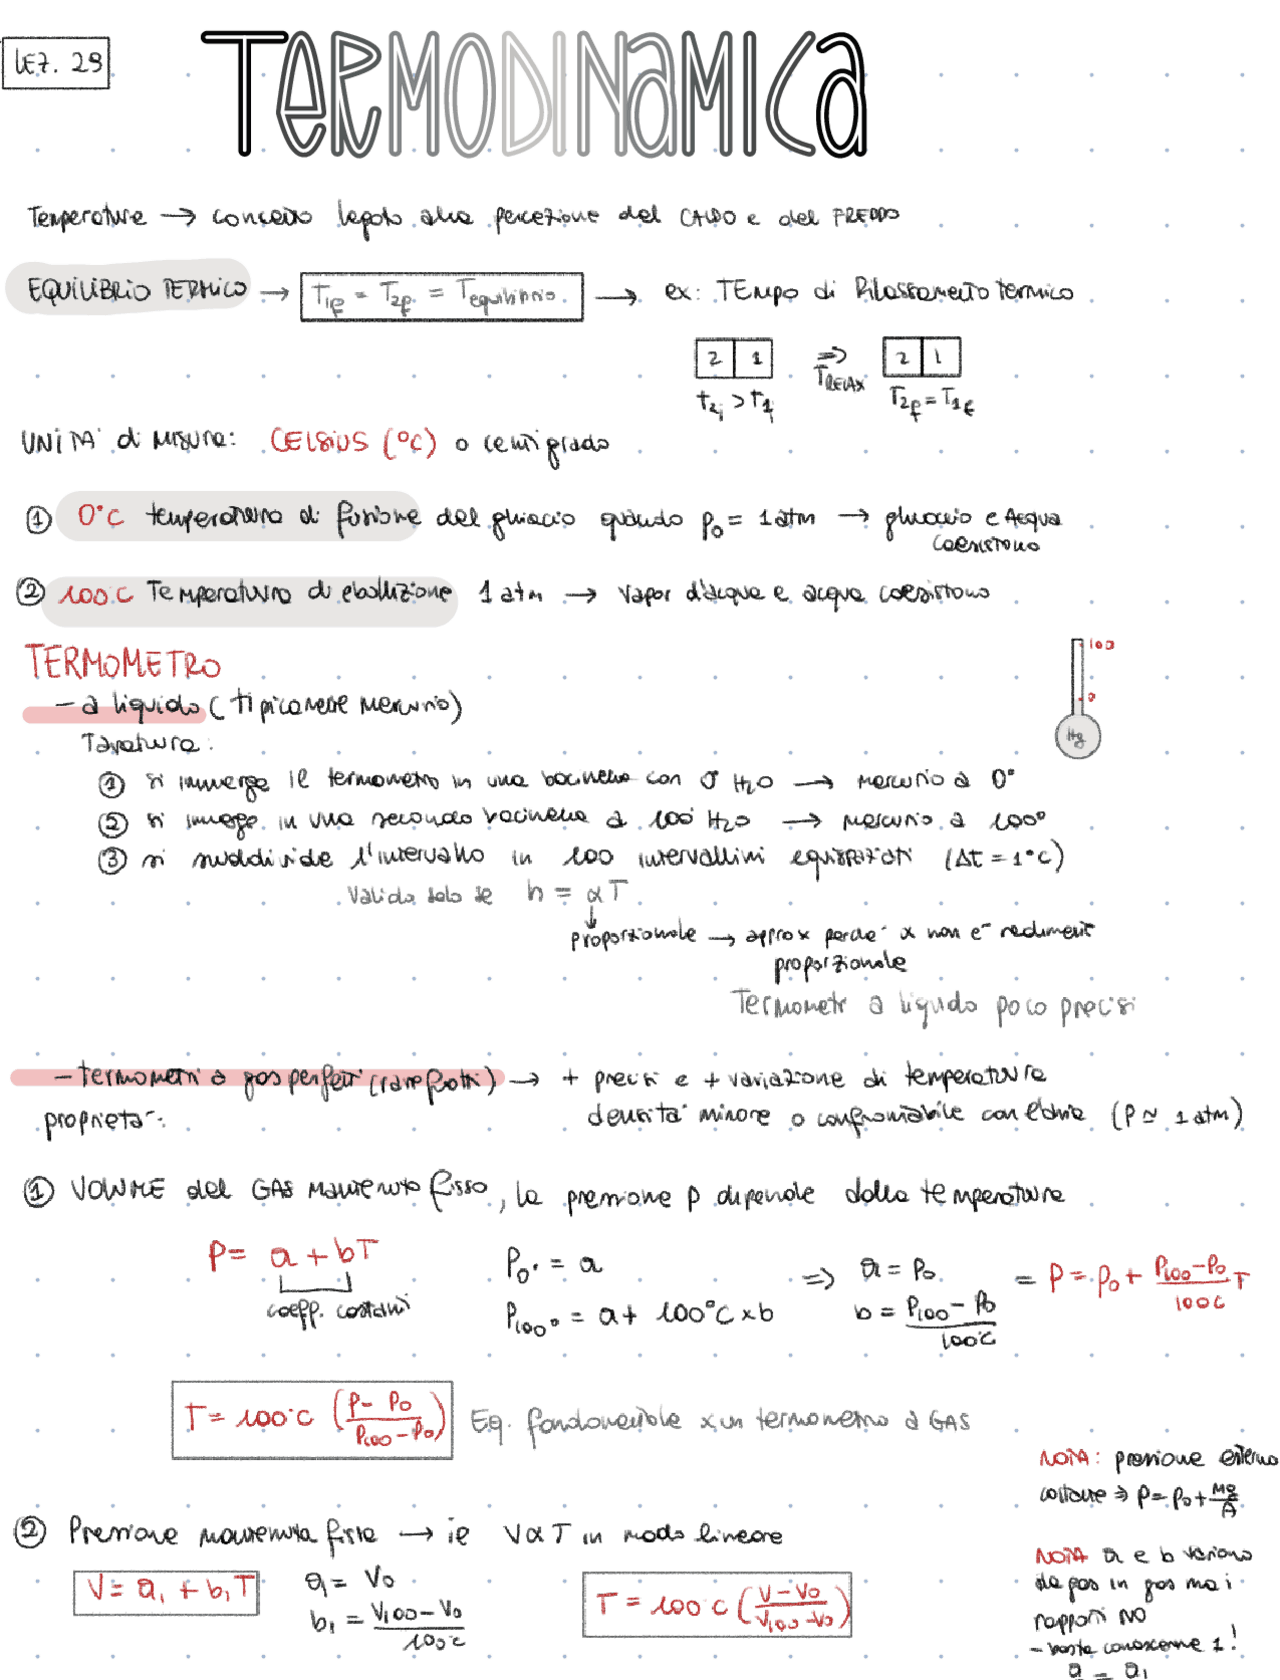 LEZ. 29
TERMODINAMICA
Temperatura → concetto legato alla percezione del CALDO e del FREDDO
EQUILIBRIO TERMICO → T1f = T2f = Tequilibrio → ex: TEMPO di Rilassamento termico
2 1 ⇒ 2 1
TRELAX
t2i > t1i T2f = T1f
UNITA' di MISURA: CELSIUS (°C) o centigrado
① 0°C temperatura di fusione del ghiaccio quando p0 = 1 atm → ghiaccio e Acqua
coesistono
② 100°C Temperatura di ebollizione 1 atm → vapor d'acqua e acqua coesistono
TERMOMETRO
100
- a liquido (tipicamente mercurio)
0
Hg
Taratura:
① si immerge il termometro in una bacinella con 0° H2O → mercurio a 0°
② si immerge in una seconda bacinella a 100° H2O → mercurio a 100°
③ si suddivide l'intervallo in 100 intervallini equispaziati (Δt = 1°C)
Valido solo se h = α T
proporzionale → approx perché α non è
proporzionale
Termometri a liquido poco precisi
- termometri a gas perfetti (rarefatti) → + precisi e + variazione di temperatura
proprietà: densità minore o confrontabile con l'aria (P ≃ 1 atm)
① VOLUME del GAS mantenuto fisso, la pressione p dipende dalla temperatura
P = a + bT
coeff. costanti
P0° = a
P100° = a + 100°C × b
⇒ a = P0
b = P100 - P0 / 100°C
= P = P0 + P100 - P0 / 100°C T
T = 100°C (P - P0 / P100 - P0) Eq. fondamentale x un termometro a GAS
NOTA: pressione esterna
costante ⇒ P = P0 + Mg/A
② Pressione mantenuta fissa → ie V α T in modo lineare
V = a1 + b1T
a1 = V0
b1 = V100 - V0 / 100°C
T = 100°C (V - V0 / V100 - V0)
NOTA a e b variano
da gas in gas ma i
rapporti NO
- basta conoscerne 1!
a = a1